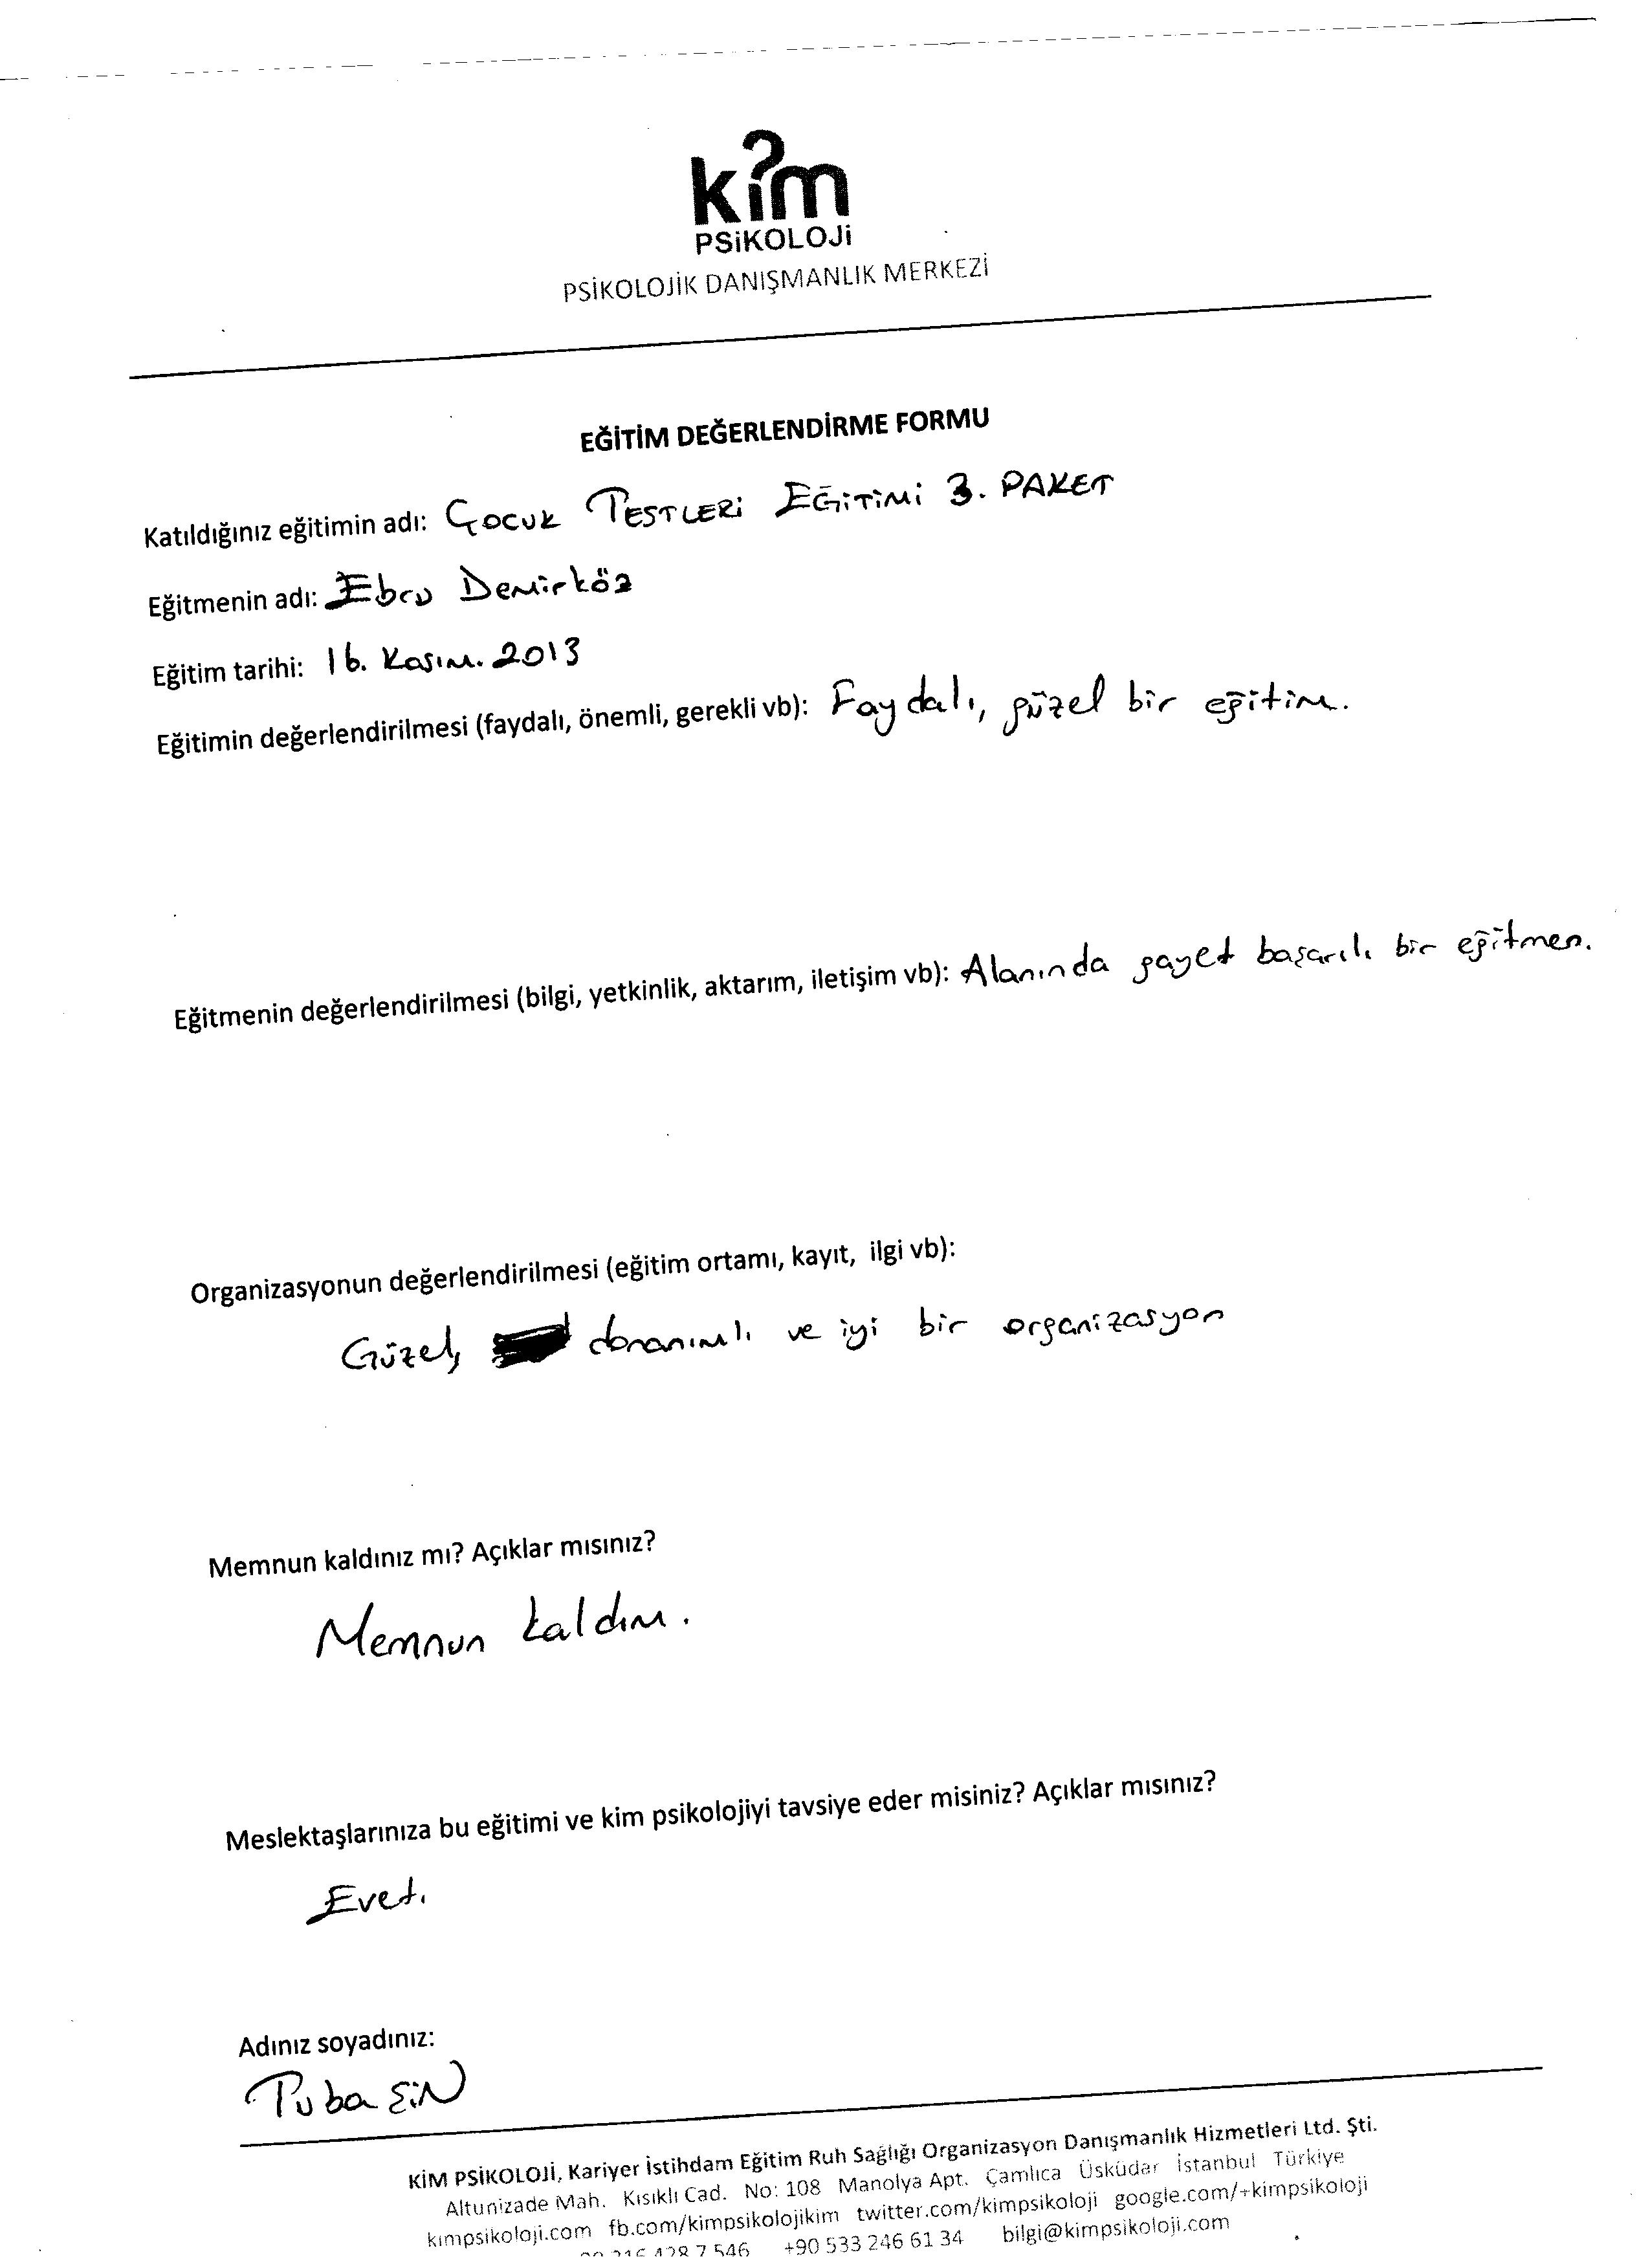 kim
PSiKOLOJi
PSİKOLOJİK DANIŞMANLIK MERKEZİ
EĞİTİM DEĞERLENDİRME FORMU
Katıldığınız eğitimin adı: ÇOCUK TESTLERİ EĞİTİMİ 3. PAKET
Eğitmenin adı: Ebru Demirköz
Eğitim tarihi: 16. Kasım. 2013
Eğitimin değerlendirilmesi (faydalı, önemli, gerekli vb): Faydalı, güzel bir eğitim.
Eğitmenin değerlendirilmesi (bilgi, yetkinlik, aktarım, iletişim vb): Alanında gayet başarılı bir eğitmen.
Organizasyonun değerlendirilmesi (eğitim ortamı, kayıt, ilgi vb):
Güzel, donanımlı ve iyi bir organizasyon
Memnun kaldınız mı? Açıklar mısınız?
Memnun kaldım.
Meslektaşlarınıza bu eğitimi ve kim psikolojiyi tavsiye eder misiniz? Açıklar mısınız?
Evet.
Adınız soyadınız:
Tuba
KİM PSİKOLOJİ, Kariyer İstihdam Eğitim Ruh Sağlığı Organizasyon Danışmanlık Hizmetleri Ltd. Şti.
Altunizade Mah. Kısıklı Cad. No: 108 Manolya Apt. Çamlıca Üsküdar İstanbul Türkiye
kimpsikoloji.com fb.com/kimpsikolojikim twitter.com/kimpsikoloji google.com/+kimpsikoloji
216 428 7 546 +90 533 246 61 34 bilgi@kimpsikoloji.com